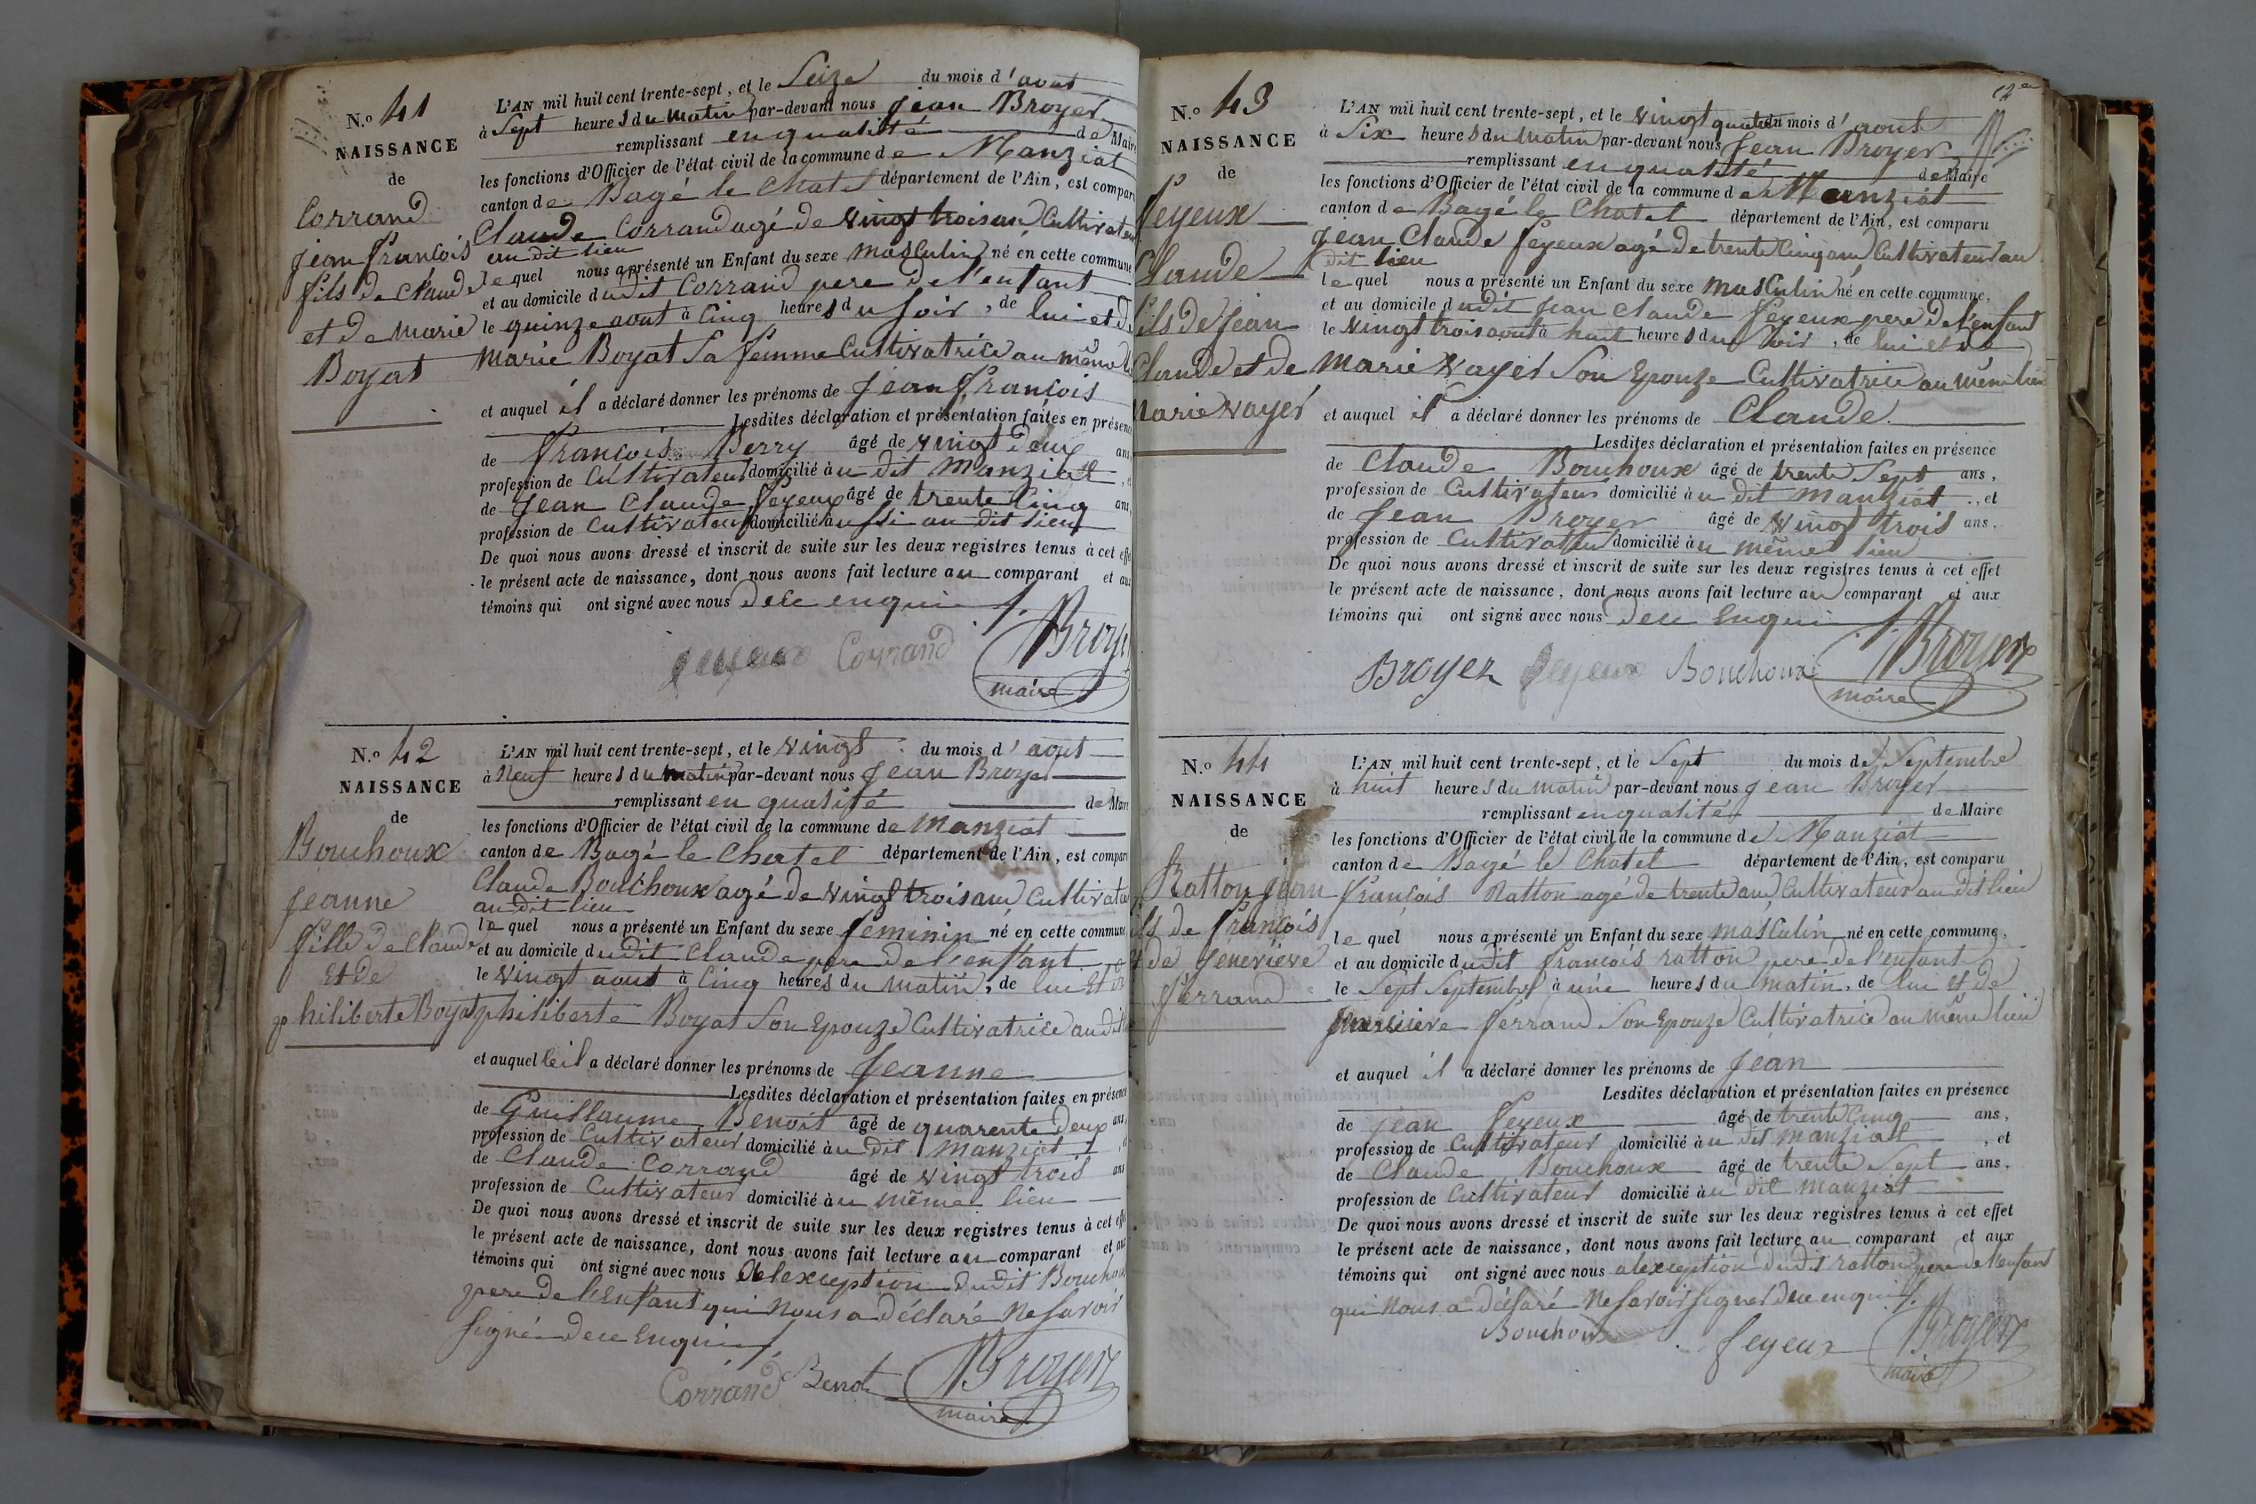 N.º 41
NAISSANCE
de
Corrand
jean françois
fils de claude
et de marie
Boyat
L'AN mil huit cent trente-sept, et le Seize du mois d'aout
à Sept heures du matin par-devant nous Jean Broyer
remplissant en qualitté de Maire
les fonctions d'Officier de l'état civil de la commune de Manziat
canton de Bagé le Chatel département de l'Ain, est comparu
Claude Corrand agé de vingt trois ans Cultivateur
au dit lieu
lequel nous a présenté un Enfant du sexe masculin né en cette commune
et au domicile dudit Corrand pere de l'enfant
le quinze aout à Cinq heures du soir, de lui et de
marie Boyat Sa femme Cultivatrice au même
et auquel il a déclaré donner les prénoms de Jean françois
Lesdites déclaration et présentation faites en présence
de françois Berry âgé de vingt deux ans
profession de Cultivateur domicilié au dit Manziat
de Jean Claude feyeux âgé de trente Cinq ans,
profession de Cultivateur domicilié aussi au dit lieu
De quoi nous avons dressé et inscrit de suite sur les deux registres tenus à cet effet
le présent acte de naissance, dont nous avons fait lecture au comparant et aux
témoins qui ont signé avec nous dece enquis
feyeux Corrand Broyer
maire
N.º 42
NAISSANCE
de
Bouchoux
jeanne
fille de claude
Et de
philiberte Boyat
L'AN mil huit cent trente-sept, et le vingt du mois d'aout
à Neuf heures du matin par-devant nous Jean Broyer
remplissant en qualité de Maire
les fonctions d'Officier de l'état civil de la commune de Manziat
canton de Bagé le Chatel département de l'Ain, est comparu
Claude Bouchoux agé de vingt trois ans Cultivateur
au dit lieu
lequel nous a présenté un Enfant du sexe feminin né en cette commune
et au domicile dudit Claude pere de l'enfant
le vingt aout à Cinq heures du matin, de lui Et de
philiberte Boyat Son Epouze Cultivatrice au dit
et auquel il a déclaré donner les prénoms de Jeanne
Lesdites déclaration et présentation faites en présence
de Guillaume Benoit âgé de quarente deux ans,
profession de Cultivateur domicilié au dit Manziat
de Claude Corrand âgé de vingt trois ans
profession de Cultivateur domicilié au même lieu
De quoi nous avons dressé et inscrit de suite sur les deux registres tenus à cet effet
le présent acte de naissance, dont nous avons fait lecture au comparant et aux
témoins qui ont signé avec nous alexception dudit Bouchoux
pere de l'Enfant qui nous a déclaré Ne Savoir
Signé dece Enquis
Corrand Benoit Broyer
maire
12e
N.º 43
NAISSANCE
de
feyeux
Claude
fils de jean
Claude et de
Marie vayer
L'AN mil huit cent trente-sept, et le vingt quatre du mois d'aout
à Six heures du matin par-devant nous Jean Broyer
remplissant en qualité de Maire
les fonctions d'Officier de l'état civil de la commune de Manziat
canton de Bagé le Chatel département de l'Ain, est comparu
jean Claude feyeux agé de trente Cinq ans Cultivateur au
dit lieu
lequel nous a présenté un Enfant du sexe masculin né en cette commune,
et au domicile dudit Jean Claude feyeux pere de l'enfant
le vingt trois aout à huit heures du Soir, de lui et de
marie vayer Son Epouze Cultivatrice au même lieu
et auquel il a déclaré donner les prénoms de Claude
Lesdites déclaration et présentation faites en présence
de Claude Bouchoux âgé de trente Sept ans,
profession de Cultivateur domicilié au dit manziat, et
de Jean Broyer âgé de vingt trois ans,
profession de Cultivateur domicilié au même lieu
De quoi nous avons dressé et inscrit de suite sur les deux registres tenus à cet effet
le présent acte de naissance, dont nous avons fait lecture au comparant et aux
témoins qui ont signé avec nous dece Enquis
Broyer feyeux Bouchoux Broyer
maire
N.º 44
NAISSANCE
de
Ratton jean
fils de françois
et de Genevieve
ferrand
L'AN mil huit cent trente-sept, et le Sept du mois de Septembre
à huit heures du matin par-devant nous jean Broyer
remplissant en qualité de Maire
les fonctions d'Officier de l'état civil de la commune de Manziat
canton de Bagé le Chatel département de l'Ain, est comparu
françois Ratton agé de trente ans Cultivateur au dit lieu
lequel nous a présenté un Enfant du sexe masculin né en cette commune,
et au domicile dudit françois ratton pere de l'enfant
le Sept Septembre à une heures du matin, de lui et de
ferrand Son Epouze Cultivatrice au même lieu
et auquel il a déclaré donner les prénoms de Jean
Lesdites déclaration et présentation faites en présence
de jean feyeux âgé de trente Cinq ans,
profession de Cultivateur domicilié au dit manziat, et
de Claude Bouchoux âgé de trente Sept ans,
profession de Cultivateur domicilié au dit manziat
De quoi nous avons dressé et inscrit de suite sur les deux registres tenus à cet effet
le présent acte de naissance, dont nous avons fait lecture au comparant et aux
témoins qui ont signé avec nous alexception dudit ratton pere de l'enfant
qui Nous a déclaré Ne Savoir signer dece enquis
Bouchoux feyeux Broyer
maire